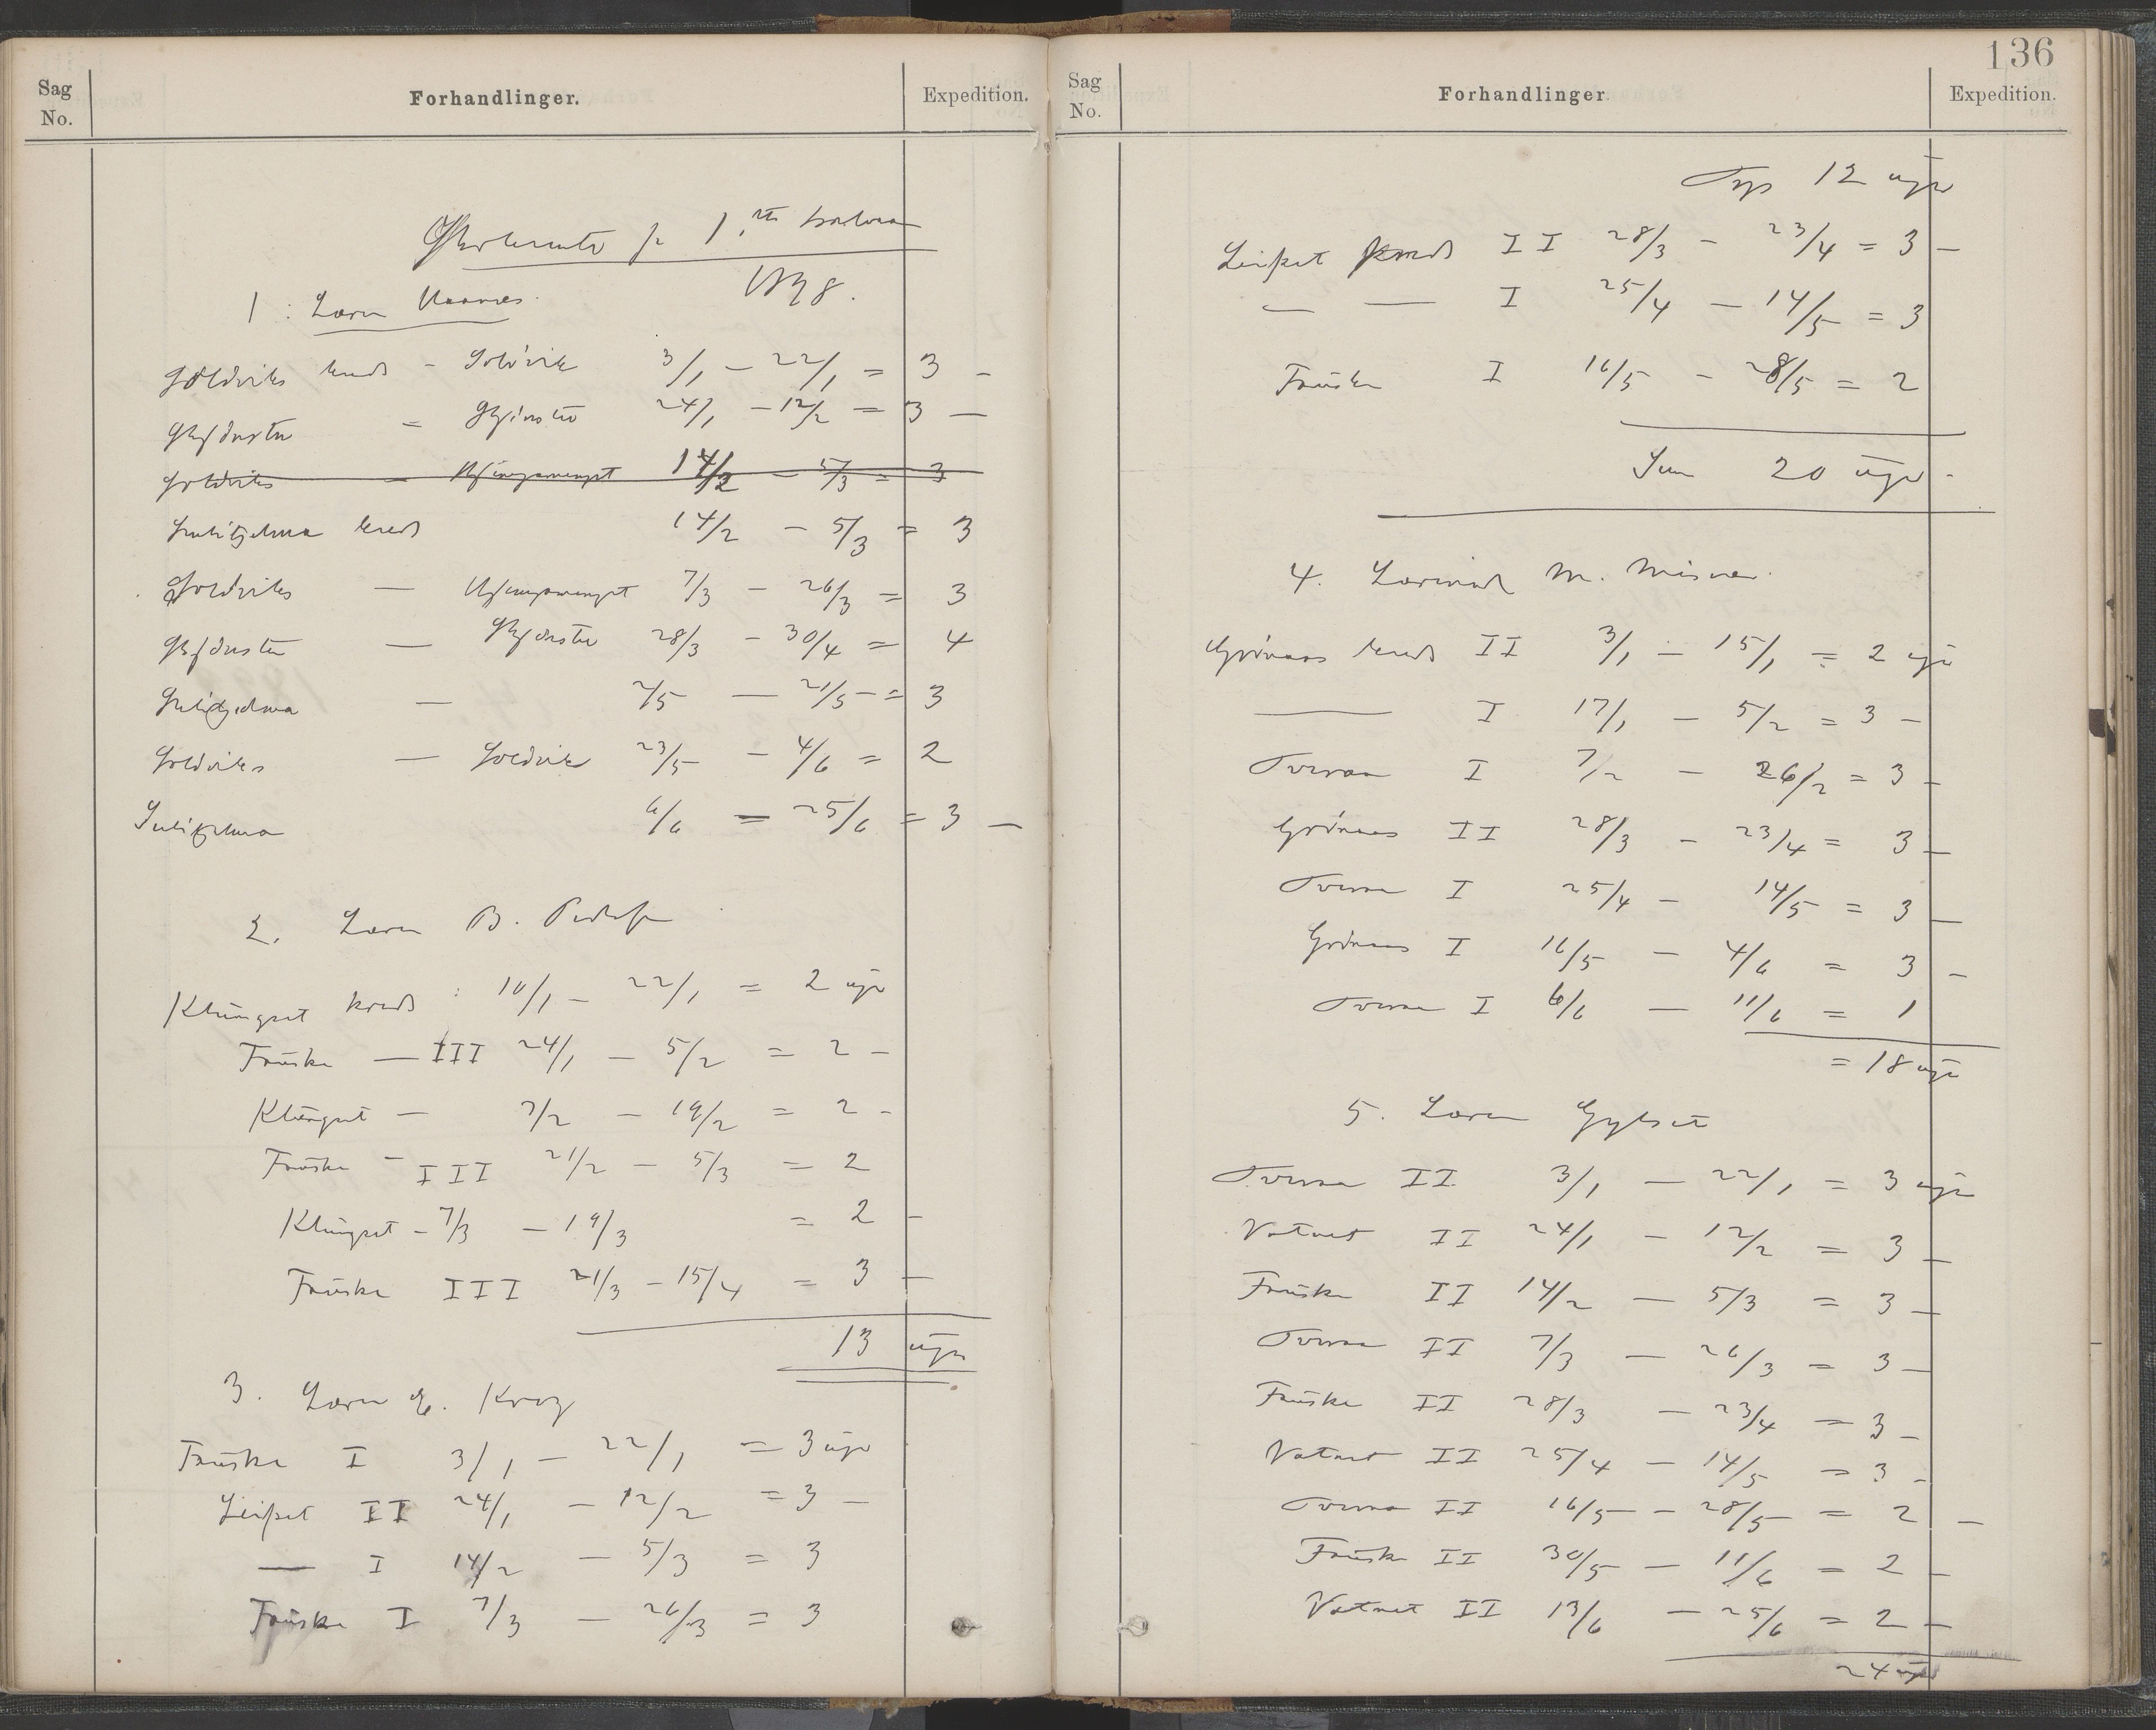 Sag No.
Forhandlinger.
Expedition.
1898.
1: Lærer
Soldviks kreds - Solvik 3/1 - 22/1 = 3 -
Skjønstu = Skjønstu 24/1 - 12/2 = 3 -
Soldviks - 14/2 - 5/3 = 3
Sulitjelma kreds 14/2 - 5/3 = 3
Soldviks - 7/3 - 26/3 = 3
Skjønstu - Skjønstu 28/3 - 30/4 = 4
Sulitjelma - 2/5 - 21/5 = 3
Soldviks - Soldvik 23/5 - 4/6 = 2
Sulitjelma 6/6 = 25/6 = 3 -
2. Lærer B. Pedersen
Klungset kreds : 10/1 - 22/1 = 2 uger
Fauske - III 24/1 - 5/2 = 2 -
Klungset - 7/2 - 19/2 = 2 -
Fauske - III 21/2 - 5/3 = 2
Klungset - 7/3 - 19/3 = 2 -
Fauske III 21/3 - 15/4 = 3 -
13 uger
3. Lærer E. Krog
Fauske I 3/1 - 22/1 = 3 uger
Leifset II 24/1 - 12/2 = 3 -
- I 14/2 - 5/3 = 3
Fauske I 7/3 - 26/3 = 3
136
Sag No.
Forhandlinger
Expedition.
12 uger
Leifset kreds II 28/3 - 23/4 = 3 -
- - I 25/4 - 14/5 = 3
Fauske I 16/5 - 28/5 = 2
Sum 20 uger -
4. Lærerinde M. Misvær.
Grønaas kreds II 3/1 - 15/1 = 2 uger
- I 17/1 - 5/2 = 3 -
Tveraa I 7/2 - 26/2 = 3 -
Grønaas II 28/3 - 23/4 = 3 -
Tveraa I 25/4 - 14/5 = 3 -
Grønaas I 16/5 - 4/6 = 3 -
Tveraa I 6/6 - 11/6 = 1
= 18 uger
5. Lærer Gylseth
Tveraa II 3/1 - 22/1 = 3 uger
Vatnet II 24/1 - 12/2 = 3 -
Fauske II 14/2 - 5/3 = 3 -
Tveraa II 7/3 - 26/3 = 3 -
Fauske II 28/3 - 23/4 = 3 -
Vatnet II 25/4 - 14/5 = 3 -
Tveraa II 16/5 - 28/5 = 2 -
Fauske II 30/5 - 11/6 = 2 -
Vatnet II 13/6 - 25/6 = 2 -
24 uger